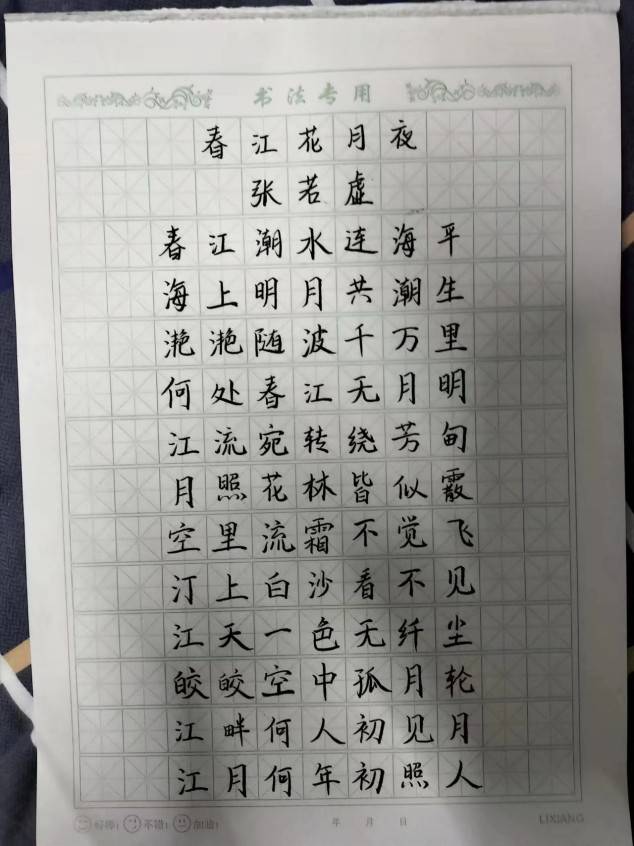 书法专用
春江花月夜
张若虚
春江潮水连海平
海上明月共潮生
滟滟随波千万里
何处春江无月明
江流宛转绕芳甸
月照花林皆似霰
空里流霜不觉飞
汀上白沙看不见
江天一色无纤尘
皎皎空中孤月轮
江畔何人初见月
江月何年初照人
好棒! 不错! 加油! 年 月 日 LIXIANG